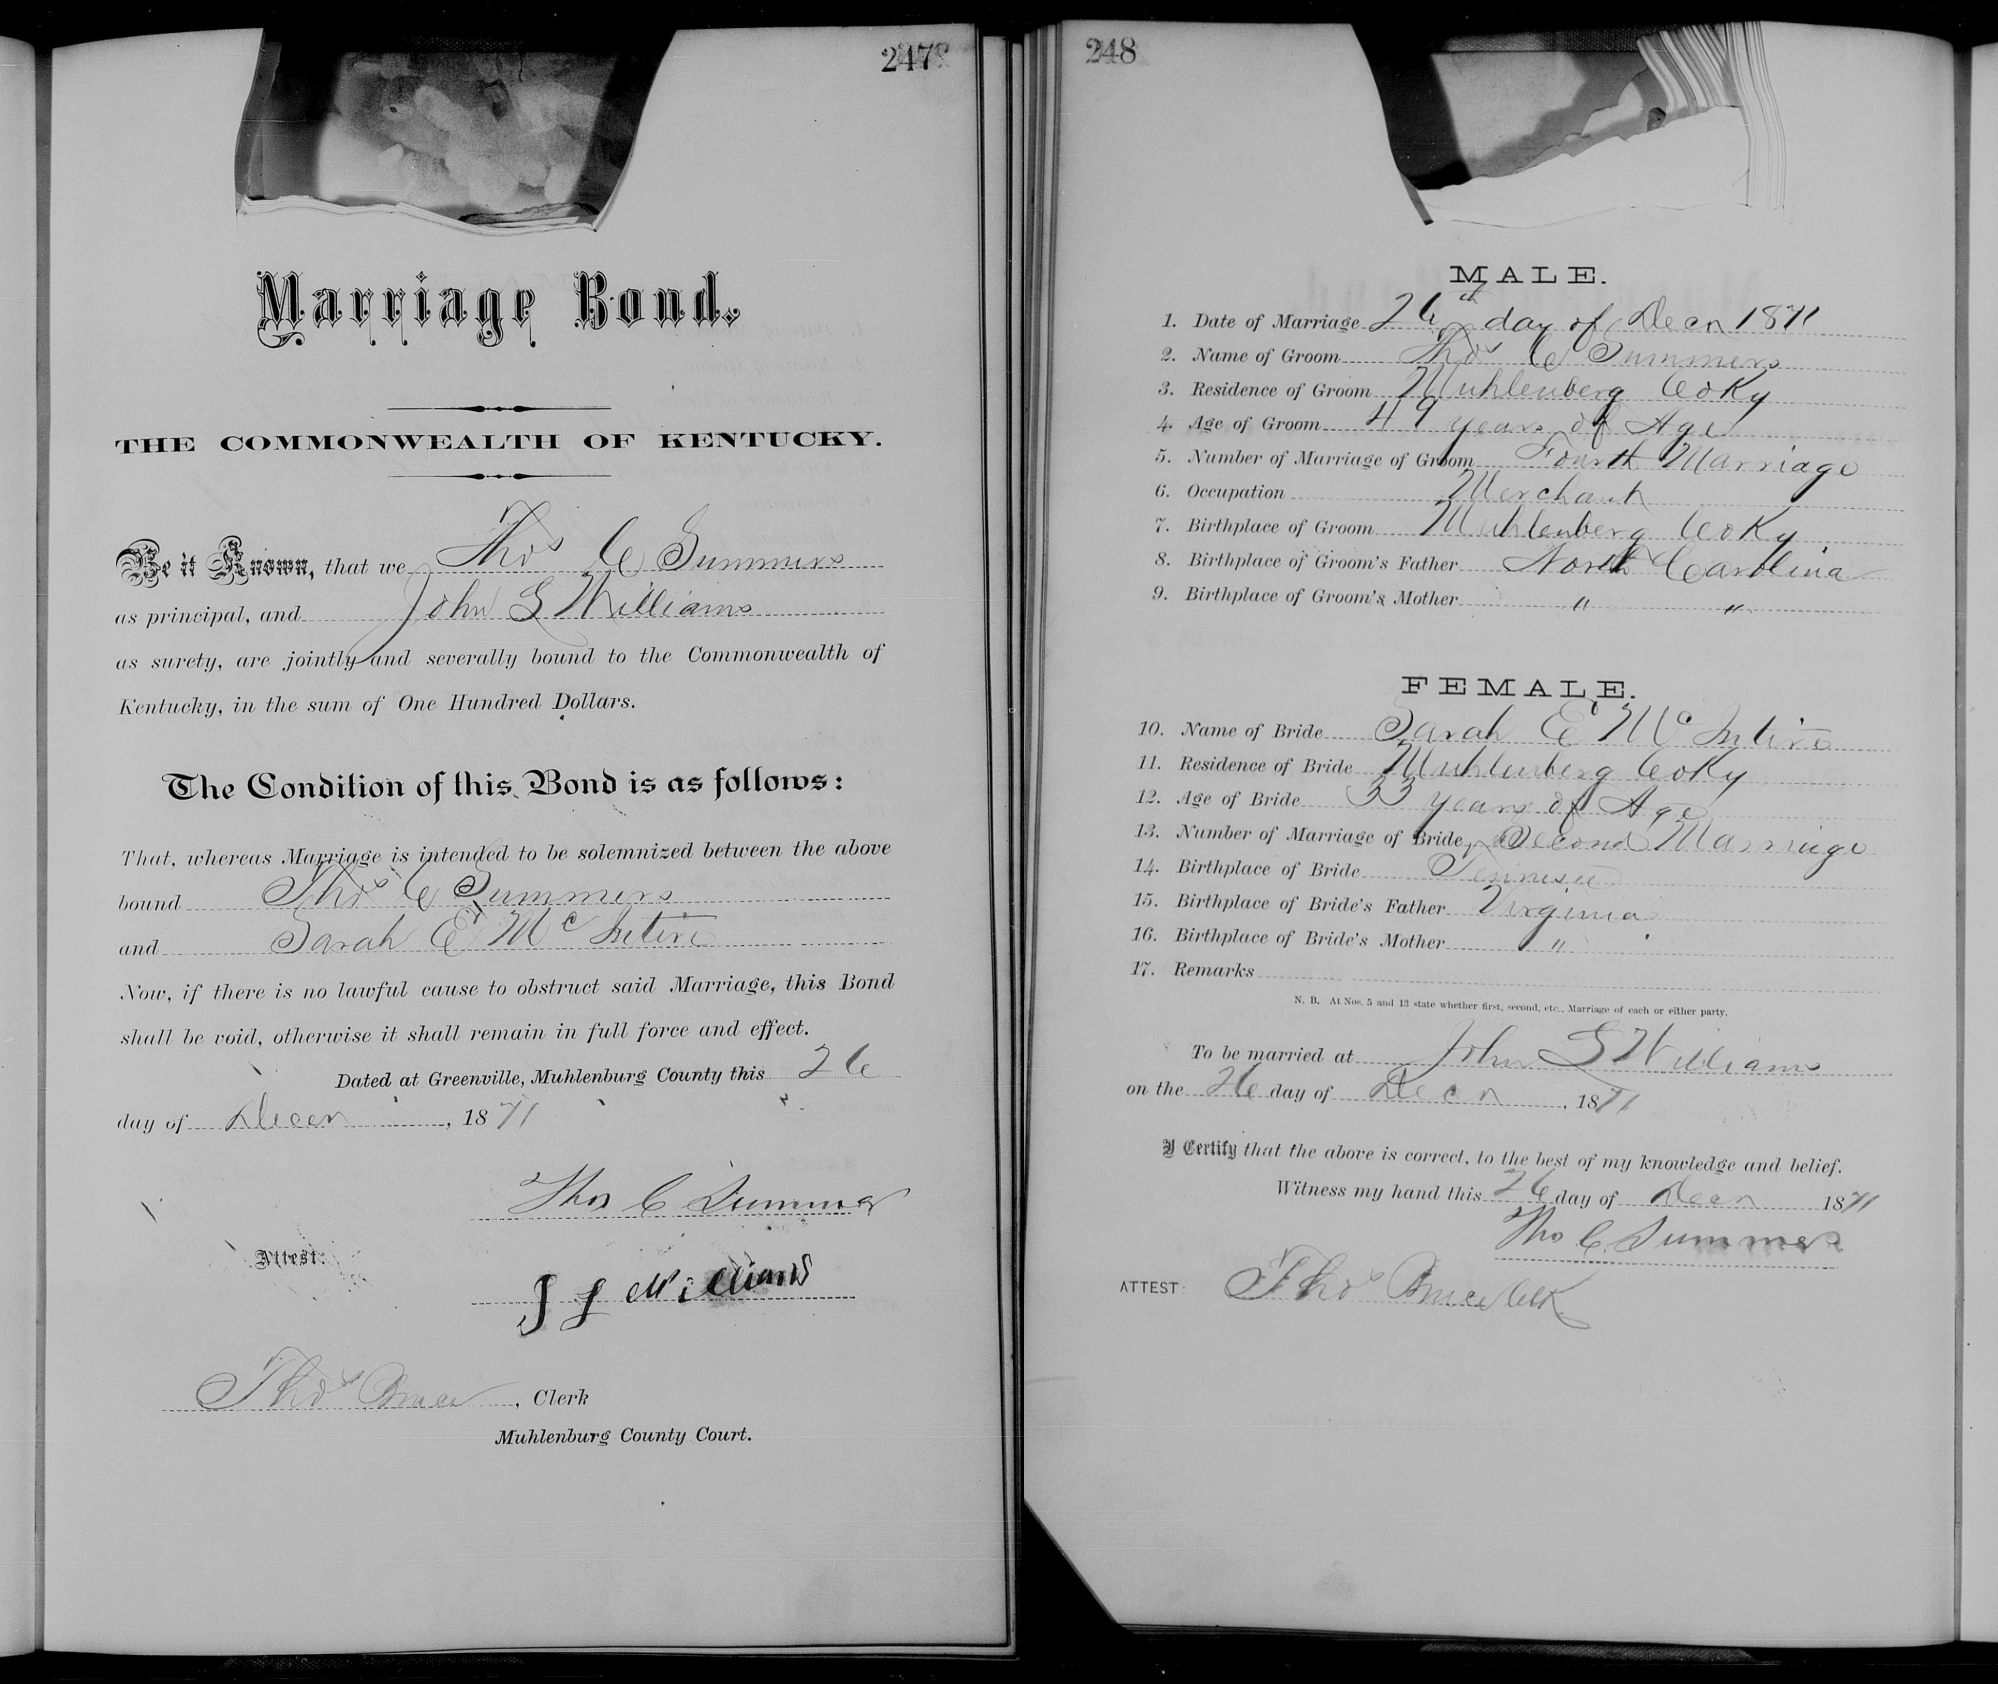 247
Marriage Bond.
THE COMMONWEALTH OF KENTUCKY.
Be it Known, that we Thos C Summers
as principal, and John S Williams
as surety, are jointly and severally bound to the Commonwealth of
Kentucky, in the sum of One Hundred Dollars.
The Condition of this Bond is as follows:
That, whereas Marriage is intended to be solemnized between the above
bound Thos C Summers
and Sarah E McIntire
Now, if there is no lawful cause to obstruct said Marriage, this Bond
shall be void, otherwise it shall remain in full force and effect.
Dated at Greenville, Muhlenburg County this 26
day of Decen, 1871
Thos C Summers
Attest:
J S Williams
Thos Bruce, Clerk
Muhlenburg County Court.
248
MALE.
1. Date of Marriage 26th day of Decn 1871
2. Name of Groom Thos C Summers
3. Residence of Groom Muhlenberg Co Ky
4. Age of Groom 49 years of Age
5. Number of Marriage of Groom Fourth Marriage
6. Occupation Merchant
7. Birthplace of Groom Muhlenberg Co Ky
8. Birthplace of Groom's Father North Carolina
9. Birthplace of Groom's Mother " "
FEMALE.
10. Name of Bride Sarah E McIntire
11. Residence of Bride Muhlenberg Co Ky
12. Age of Bride 33 years of Age
13. Number of Marriage of Bride Second Marriage
14. Birthplace of Bride Tennisee
15. Birthplace of Bride's Father Virginia
16. Birthplace of Bride's Mother "
17. Remarks
N. B. At Nos. 5 and 13 state whether first, second, etc., Marriage of each or either party.
To be married at John S Williams
on the 26 day of Decn, 1871
I Certify that the above is correct, to the best of my knowledge and belief.
Witness my hand this 26 day of Decn 1871
Tho C. Summers
ATTEST: Thos Bruce Clk